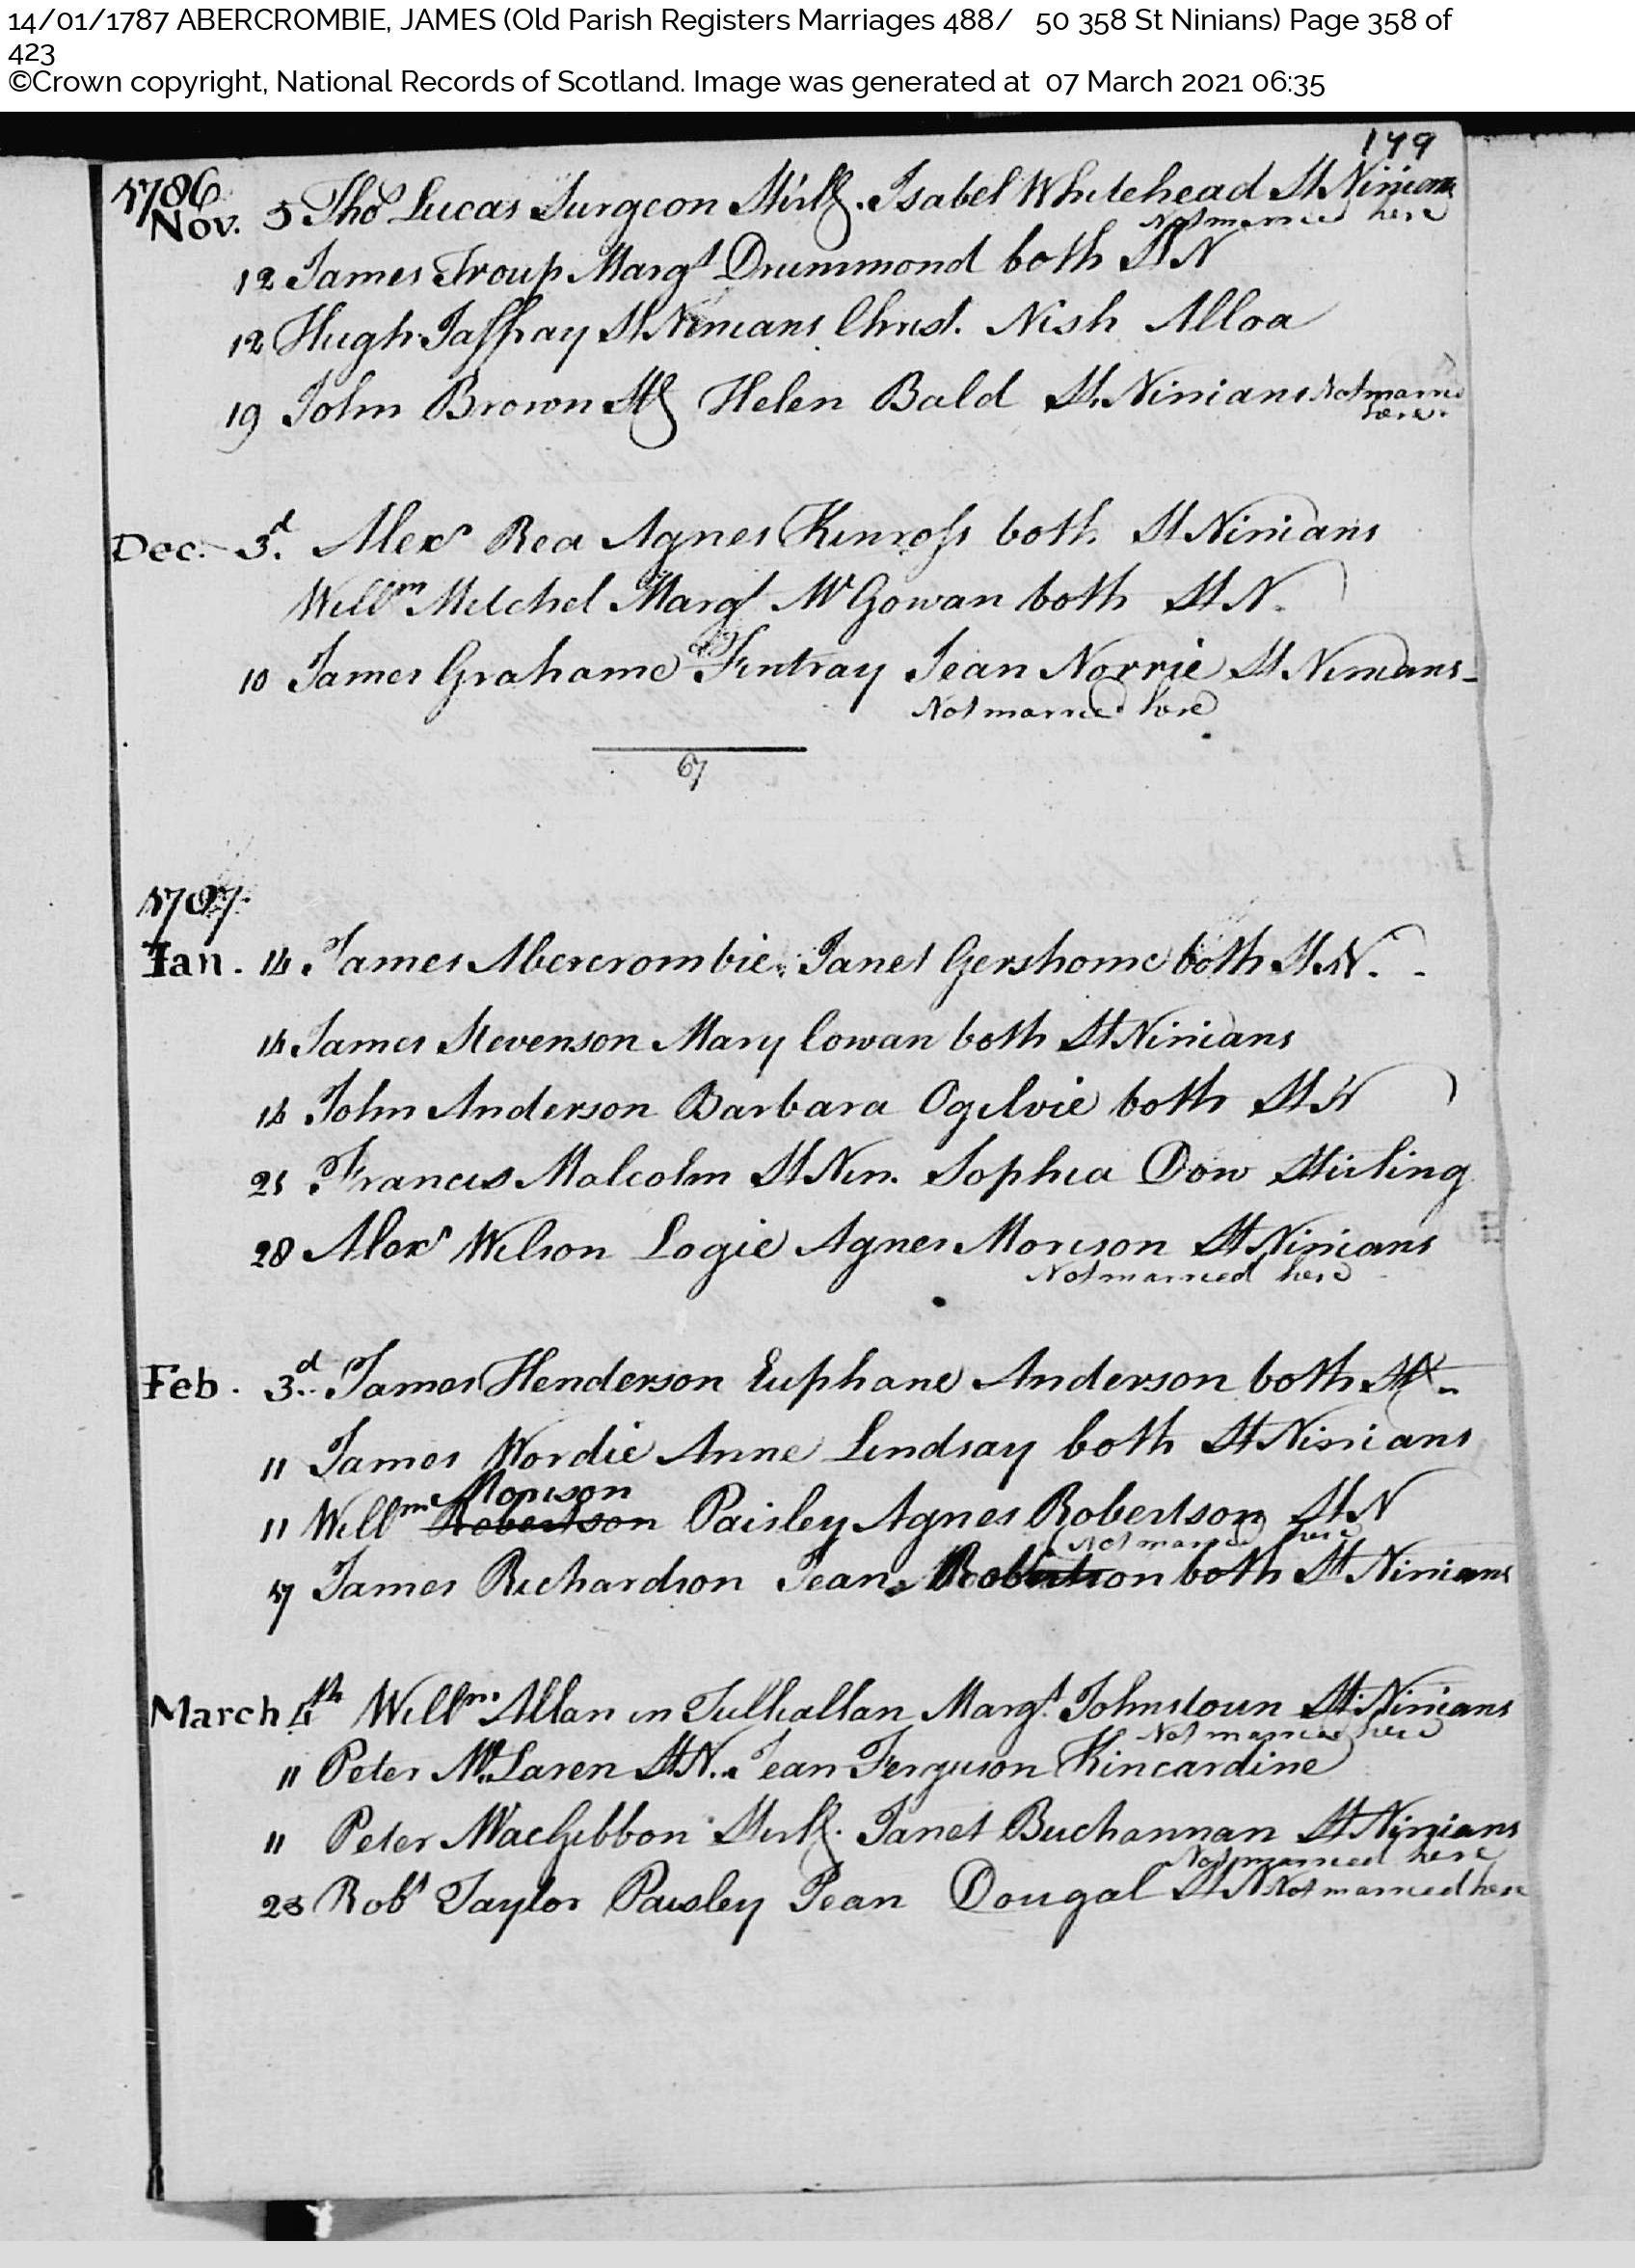 14/01/1787 ABERCROMBIE, JAMES (Old Parish Registers Marriages 488/ 50 358 St Ninians) Page 358 of
423
©Crown copyright, National Records of Scotland. Image was generated at 07 March 2021 06:35
149
1786
Nov. 5 Thos Lucas Surgeon Stirlg. Isabel Whitehead St Ninians
Not married here
12 James Troup Margt Drummond both St N
12 Hugh Jaffray St Ninians Christ. Nish Alloa
19 John Brown Stg Helen Bald St. Ninians Not married
here.
Dec. 3d. Alexr Rea Agnes Kinross both St Ninians
Willm Mitchel Margt McGowan both St N.
10 James Grahame of Fintray Jean Norrie St Ninians
Not married here
67
1787
Jan. 14 James Abercrombie Janet Gershome both St N.
14 James Stevenson Mary Cowan both St Ninians
14 John Anderson Barbara Ogilvie both St N
21 Francis Malcolm St Nin. Sophia Dow Stirling
28 Alexr Wilson Logie Agnes Morison St Ninians
Not married here
Feb. 3d. James Henderson Euphane Anderson both St N
11 James Wordie Anne Lindsay both St Ninians
Morison
11 Willm Robertson Paisley Agnes Robertson St N
Not married here
17 James Richardson Jean Robertson both St Ninians
March 4th Willm Allan in Tulliallan Margt. Johnstoun St Ninians
Not married here
11 Peter McLaren St N. Jean Ferguson Kincardine
11 Peter MacGibbon Stirlg. Janet Buchannan St Ninians
Not married here
23 Robt Taylor Paisley Jean Dougal St N Not married here